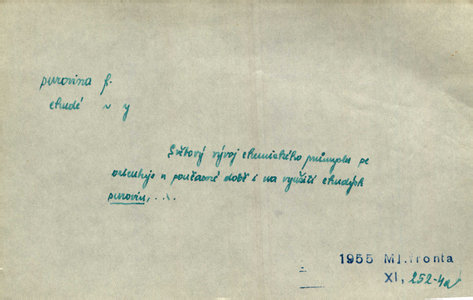 surovina f.
chudé ~ y
Světový vývoj chemického průmyslu se
orientuje v současné době i na využití chudých
surovin, ...
1955 Ml.fronta
XI, 252-4a